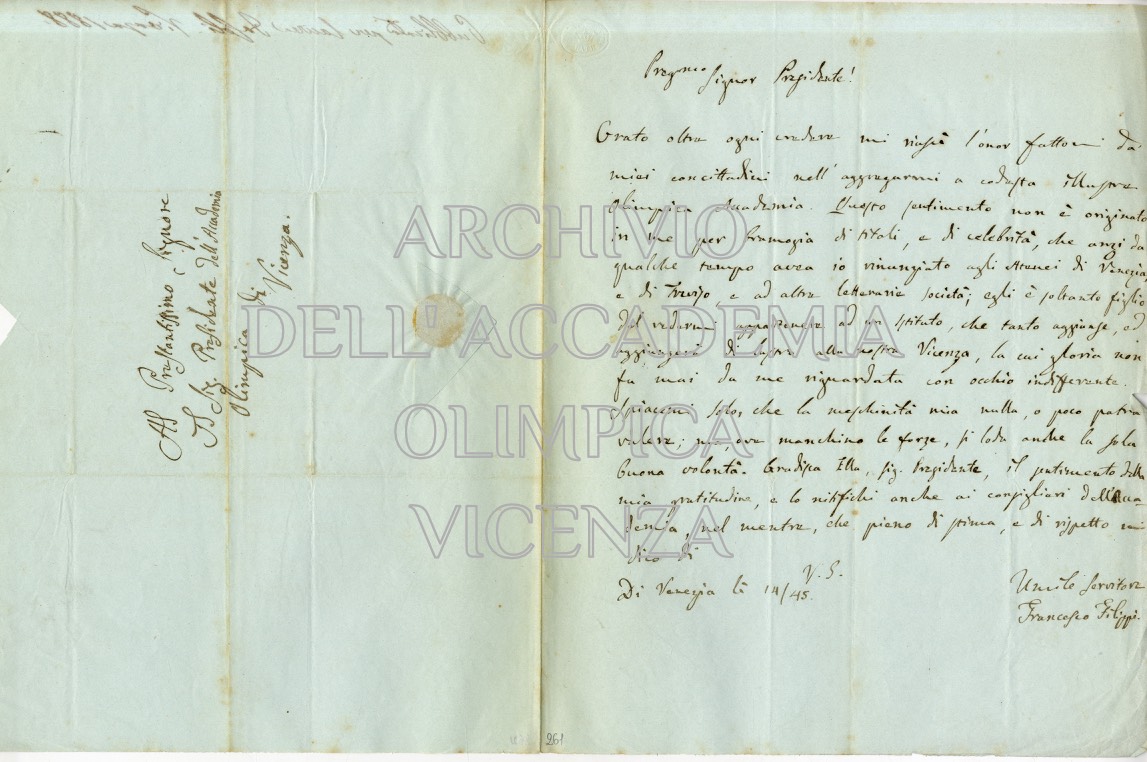 Al Prestantissimo Signore
Il Sig. Presidente dell'Accademia
Olimpica di
Vicenza.
Pregmo Signor Presidente!
Grato oltre ogni credere mi riescì l'onor fattomi da'
miei concittadini nell'aggregarmi a codesta illustre
Olimpica Accademia. Questo sentimento non è originato
in me per bramosia di titoli, e di celebrità, che anzi da
qualche tempo avea io rinunziato agli Atenei di Venezia
e di Treviso, e ad altre letterarie società; egli è soltanto figlio
del vedermi appartenere ad un Istituto, che tanto aggiunse, ed
aggiungerà di lustro alla nostra Vicenza, la cui gloria non
fu mai da me riguardata con occhio indifferente.
Spiacemi solo, che la meschinità mia nulla, o poco potrà
valere; ma, ove manchino le forze, si loda anche la sola
buona volontà. Gradisca Ella, Sig. Presidente, il sentimento della
mia gratitudine, e lo notifichi anche ai consiglieri dell'Acca
demia, nel mentre, che pieno di stima, e di rispetto mi
dico di
V. S.
Di Venezia li 14/45.
Umile Servitore
Francesco Filippi.
261
ARCHIVIO
DELL'ACCADEMIA
OLIMPICA
VICENZA